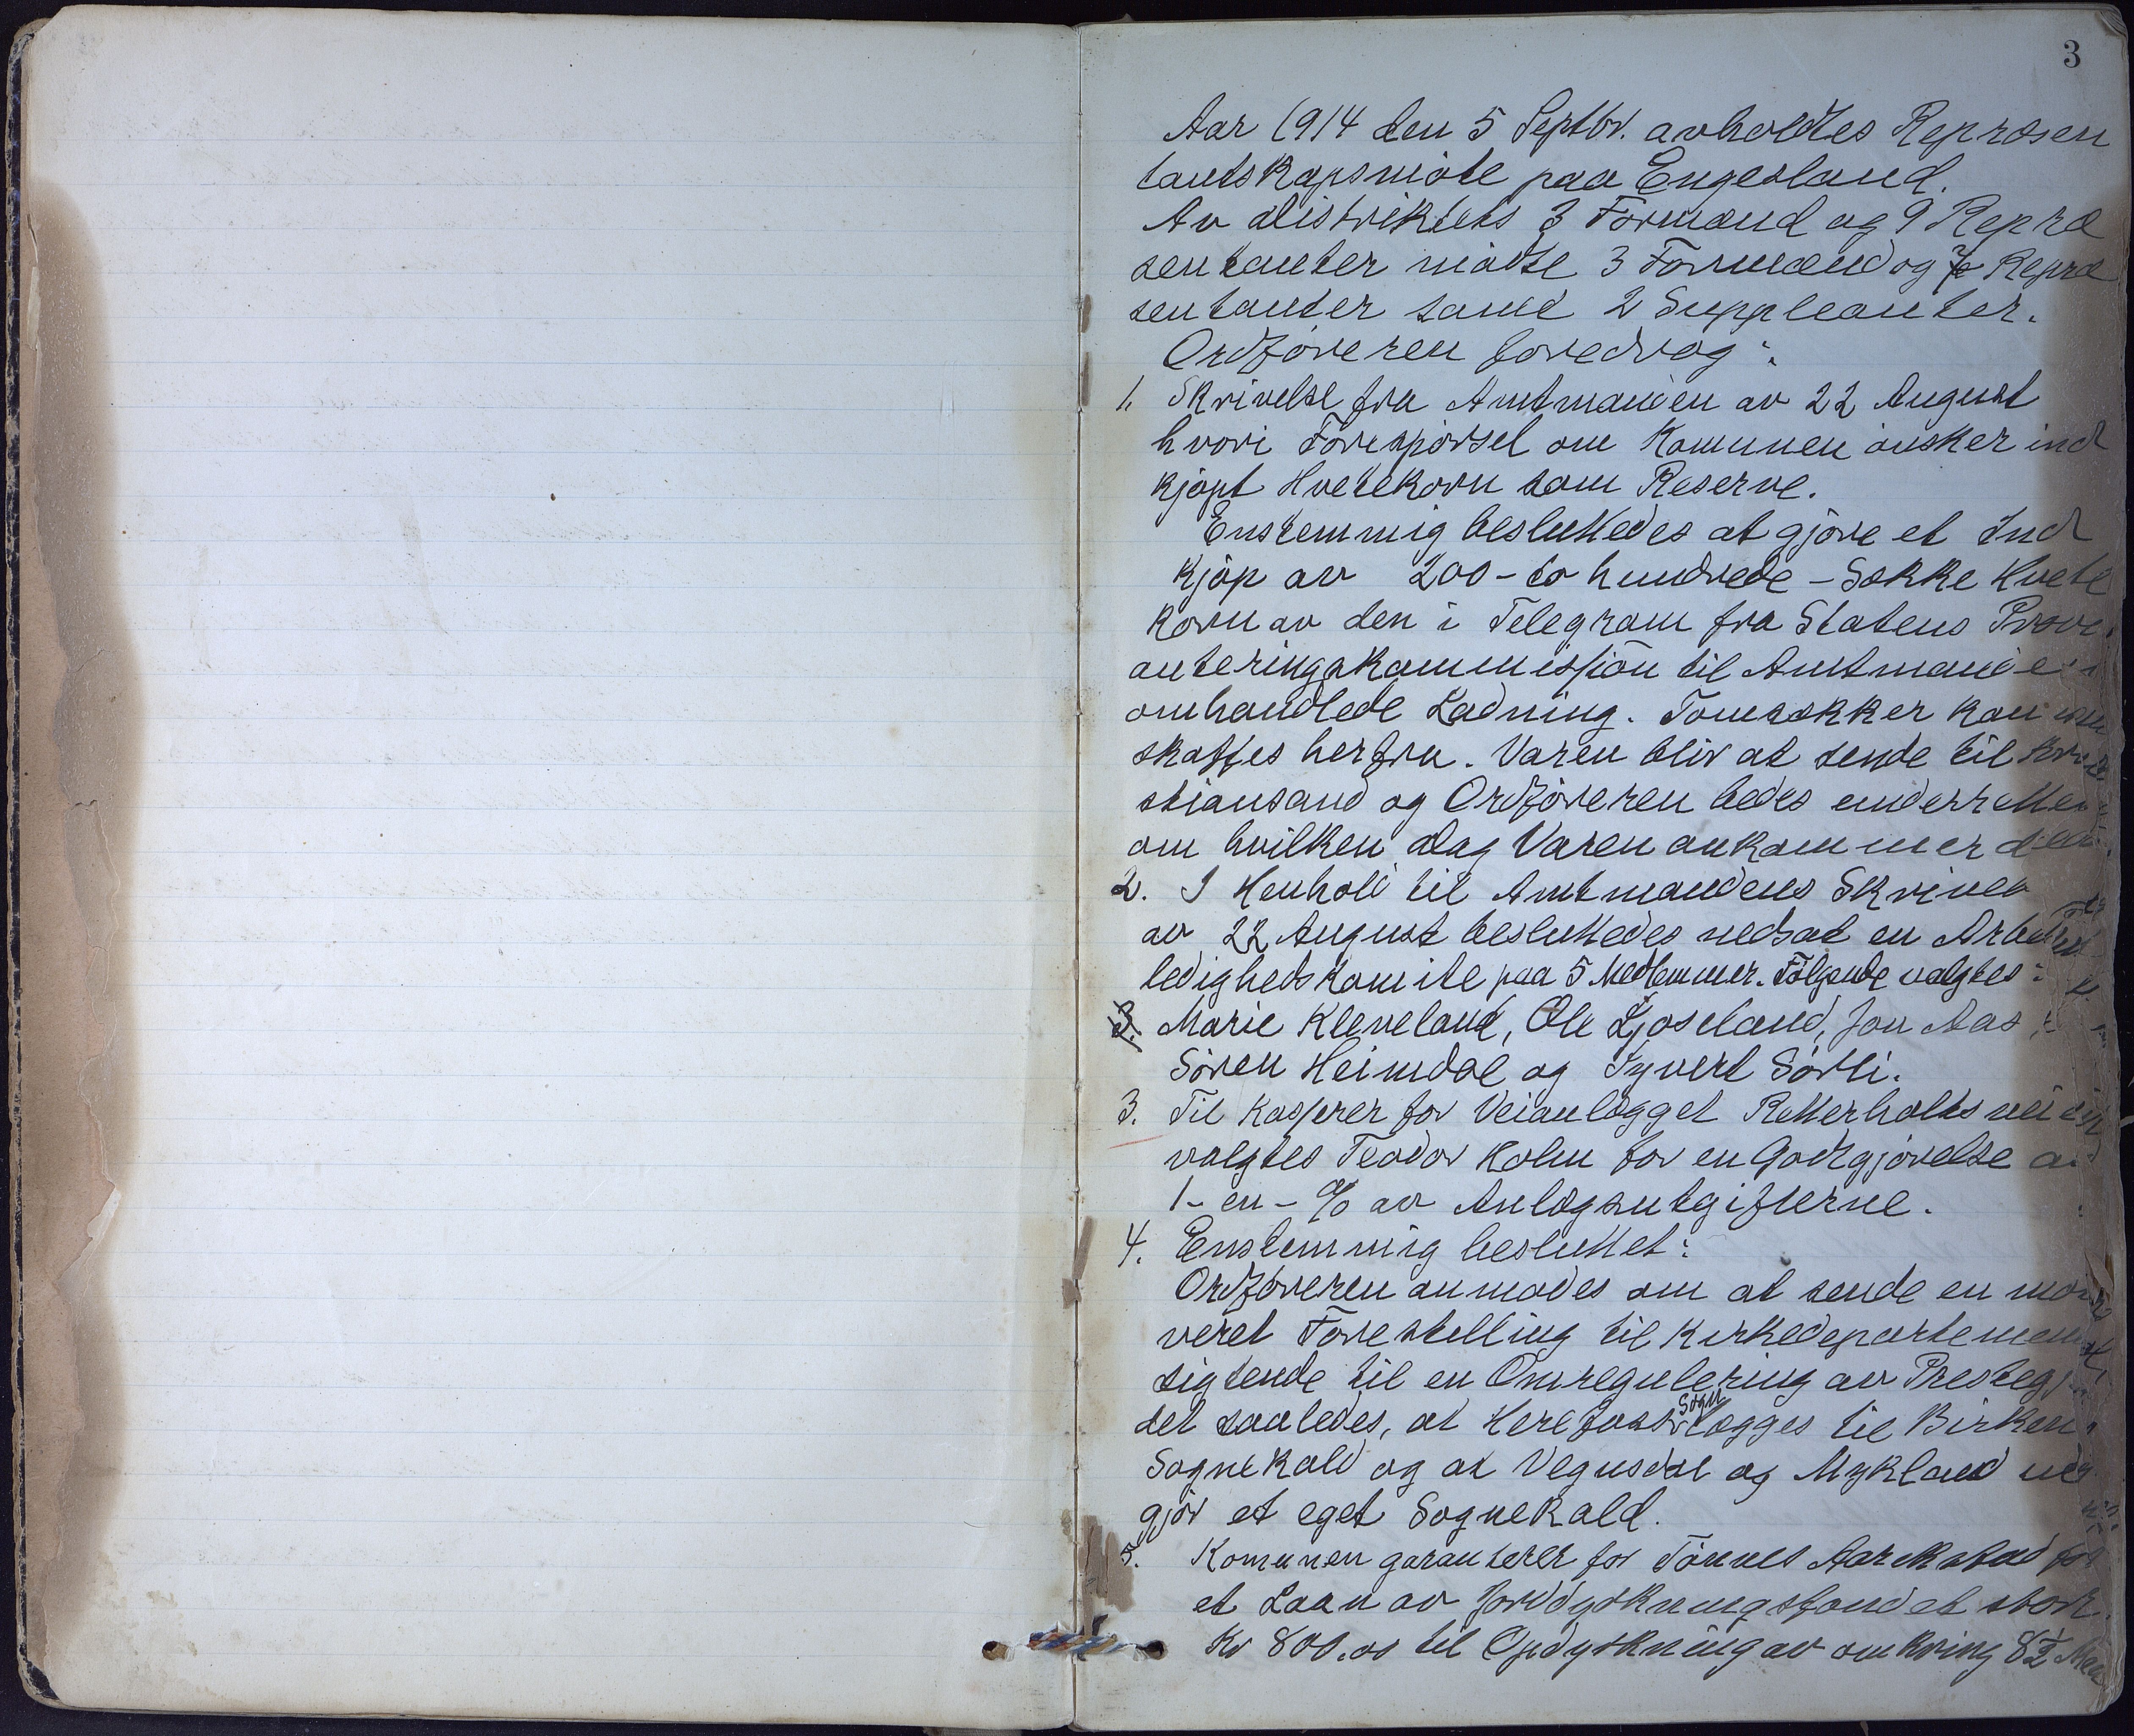 3
Aar 1914 den 5 Septbr. avholdtes Repræsen
tantskapsmöte paa Engesland.
Av distriktets 3 Formænd og 9 Repræ
sentanter mödte 3 Formænd og 7 Repræ
sentanter samt 2 Suppleanter.
Ordföreren foredrog:
1. Skrivelse fra Amtmanden av 22 August
hvori Forespörsel om Komunen önsker ind
kjöpt Hvetekorn som Reserve.
Enstemmig besluttedes at gjöre et Ind
kjöp av 200 - to hundrede - Sække Hvete
korn av den i Telegram fra Statens Provi
anteringskommission til Amtmanden
omhandlede Ladning. Tomsækker kan
skaffes herfra. Varen blir at sende til Kri
stiansand og Ordföreren bedes underrettet
om hvilken Dag Varen ankommer der.
2. I Henhold til Amtmandens Skrivelse
av 22 August besluttedes nedsat en Arbeids
ledighedskomite paa 5 Medlemmer. Fölgende valgtes:
Marie Kleveland, Ole Ljosland, Jon Aas
Sören Heimdal og Syvert Sörli.
3. Til Kasserer for Veianlægget Retterholtsveien
valgtes Teodor Holm for en Godtgjörelse av
1 - en - % av Anlægsutgifterne.
4. Enstemmig besluttet:
Ordföreren anmodes om at sende en moti
veret Forestilling til Kirkedepartementet
sigtende til en Omregulering av Prestegj
det saaledes, at Herefoss Sogn lægges til Birkenes
Sognekald og at Vegusdal og Mykland ud
gjör et eget Sognekald.
5. Komunen garanterer for Tönnes Aarikstad for
et Laan av Jorddyrkningsfondet stort
Kr 800.00 til Opdyrkning av omkring 8½ Maal